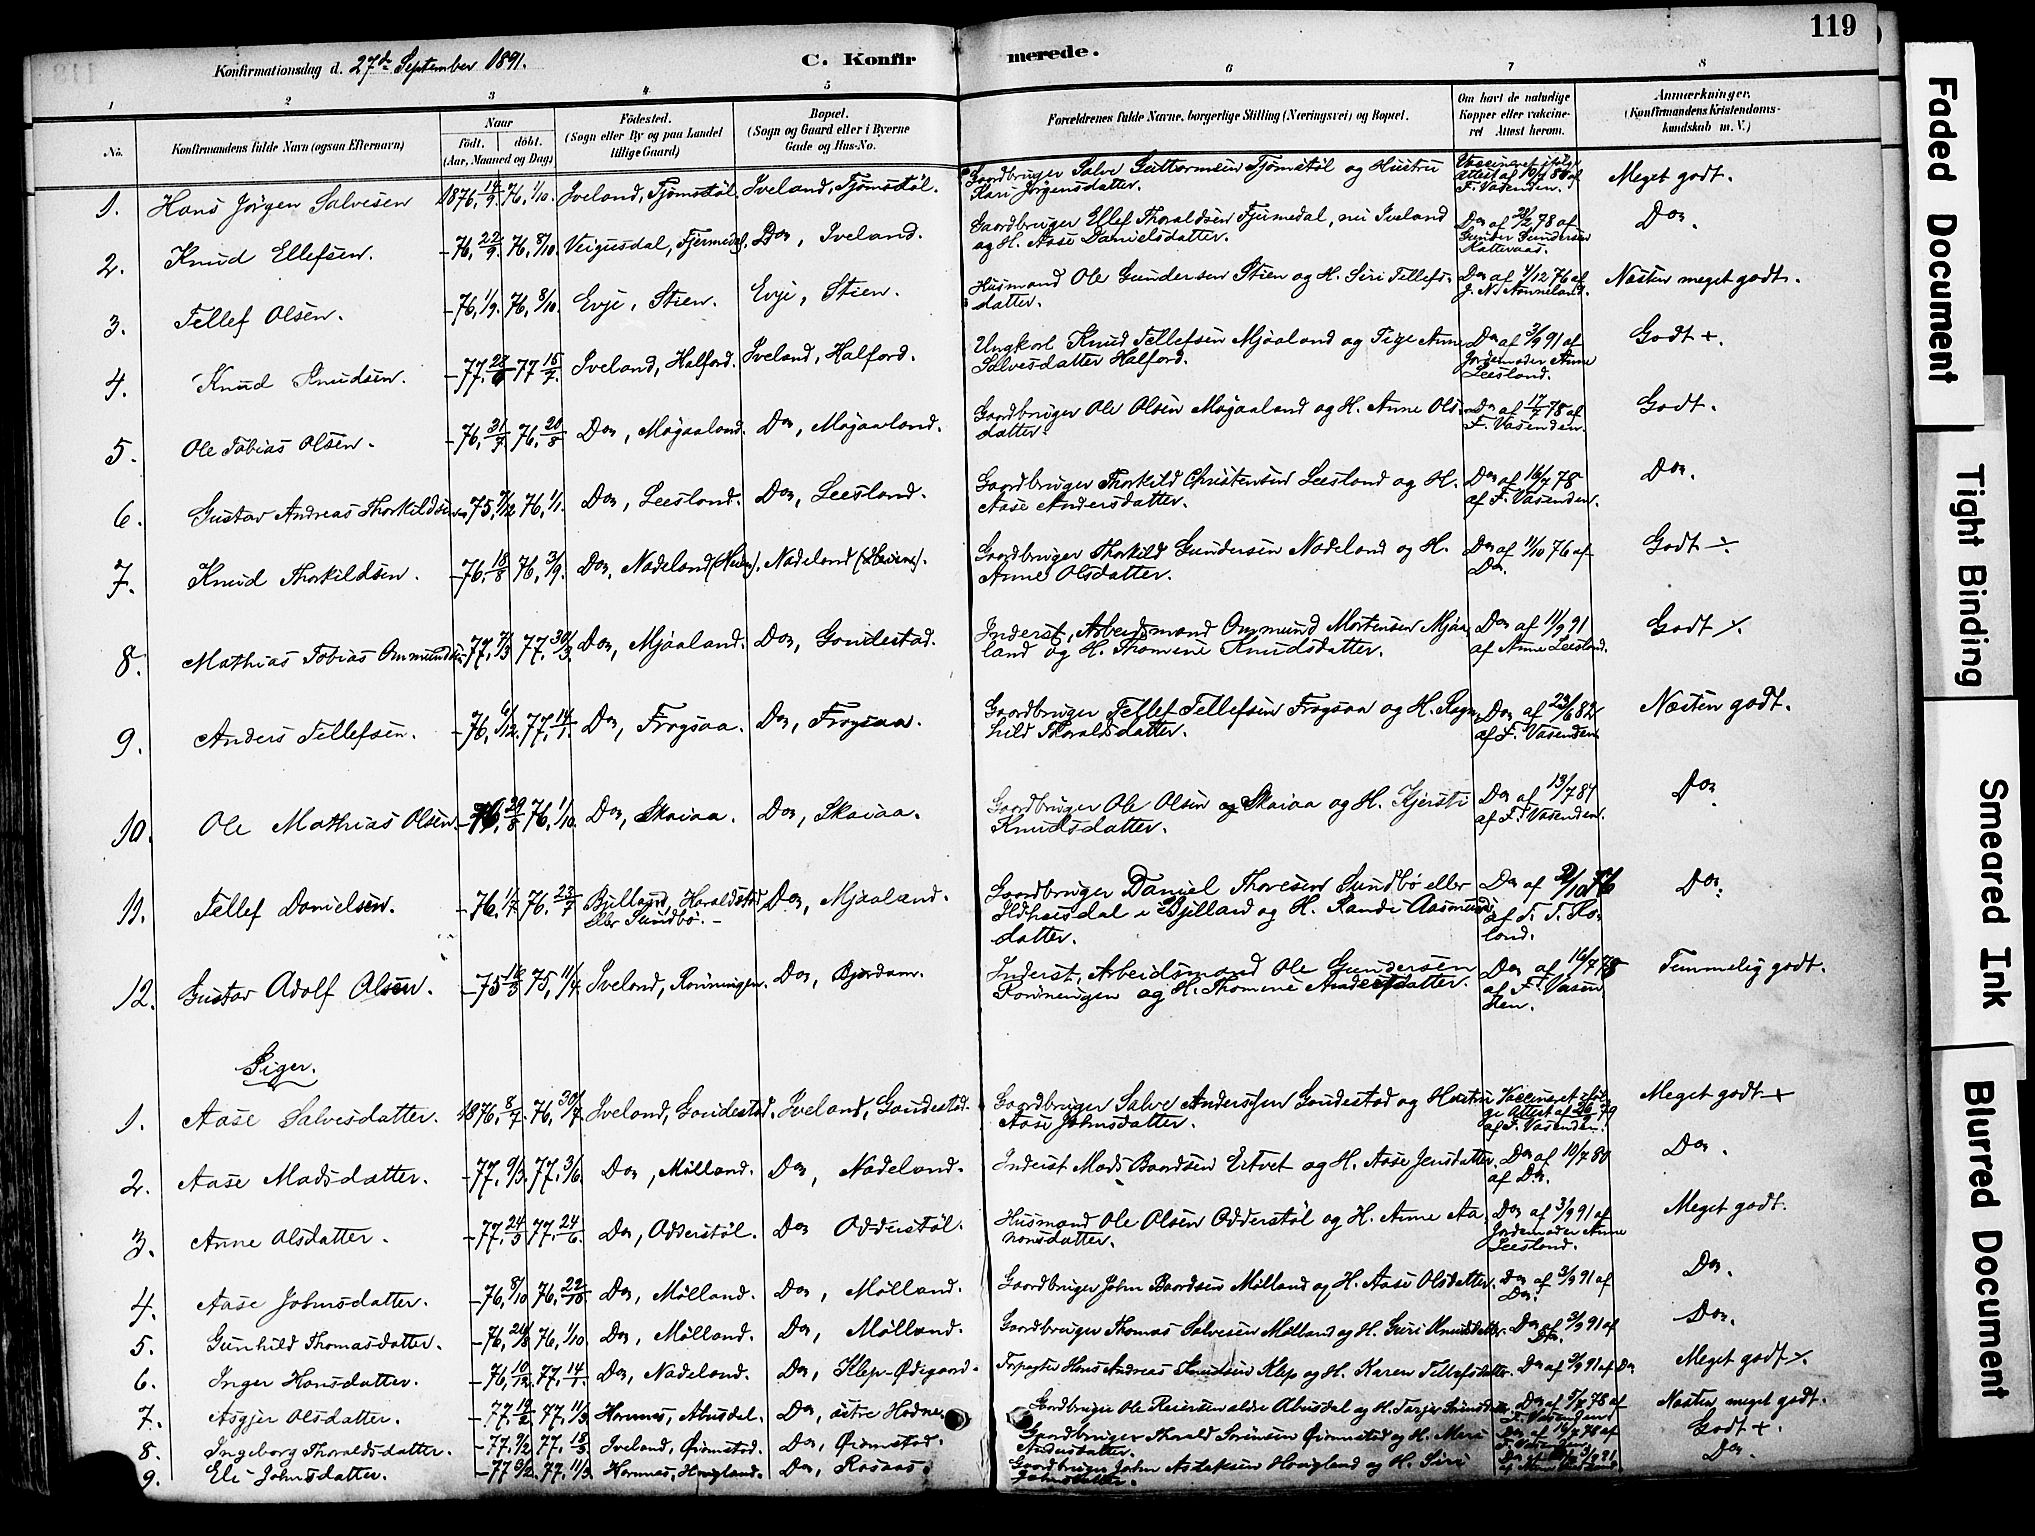 119
Konfirmationsdag d. 27de September 1891.
C. Konfirmerede.
1 2 3 4 5 6 7 8
No. Konfirmandens fulde Navn (ogsaa Efternavn) Naar født. døbt. (Aar, Maaned og Dag) Fødested. (Sogn eller By og paa Landet tillige Gaard) Bopæl. (Sogn og Gaard eller i Byerne Gade og Hus-No. Forældrenes fulde Navne, borgerlige Stilling (Næringsvei) og Bopæl. Om havt de naturlige Kopper eller vakcineret Attest herom. Anmærkninger. (Konfirmandens Kristendomskundskab m. V.)
1. Hans Jörgen Salvesen 1876, 14/9. 76, 1/10. Iveland, Tjömstöl. Iveland, Tjömstöl. Gaardbruger Salve Guttormsen Tjömstöl og Hustru Kari Jörgensdatter. Vaccineret ifølge Attest af F. Vasenden. Meget godt.
2. Knud Ellefsen. - 76, 22/9. 76, 8/10. Veigusdal, Fjermedal. Do, Iveland. Gaardbruger Ellef Thoraldsen Fjermedal, nu Iveland og H. Aase Danielsdatter. Do af 78 af Gunder Gundersen Do.
3. Tellef Olsen. - 76, 1/9. 76, 8/10. Evje, Stien. Evje, Stien. Husmand Ole Gundersen Stien og H. Siri Tellefsdatter. Do af 4/12 76 af Næsten meget godt.
4. Knud Knudsen. - 77, 77 15/7. Iveland, Halford. Iveland, Halford. Ungkarl Knud Tellefsen Mjaaland og Pige Anne Salvesdatter Halford. Do af 3/9 91 af Jordemoder Anne Leesland. Godt +.
5. Ole Tobias Olsen. - 76, 31/7. 76, 20/8. Do, Mjaaland. Do, Mjaaland. Gaardbruger Ole Olsen Mjaaland og H. Anne Olsdatter. Do af 17/7 78 af F. Vasenden. Godt.
6. Gustav Andreas Thorkildsen - 75, 9/12. 76, 1/1. Do, Leesland. Do, Leesland. Gaardbruger Thorkild Christensen Leesland og H. Aase Andersdatter. Do af 16/7 78 af F. Vasenden. Do.
7. Knud Thorkildsen. - 76, 18/8. 76, 3/9. Do, Nadeland (Heien). Nadeland (Heien). Gaardbruger Thorkild Gundersen Nadeland og H. Anne Olsdatter. Do af 11/10 76 af Do. Godt ÷.
8. Mathias Tobias Ommundsen - 77, 7/3. 77, 30/3. Do, Mjaaland. Do, Goudestad. Inderst, Arbeidsmand Ommund Mortensen Mjaaland og H. Thomine Knudsdatter. Do af 11/9 91 af Anne Leesland. Godt ÷.
9. Anders Tellefsen. - 76, 6/12. 77, 14/1. Do, Frøysaa. Do, Frøysaa. Gaardbruger Tellef Tellefsen Frøysaa og H. Ragnhild Thoraldsdatter. Do af 23/6 82 af F. Vasenden. Næsten godt.
10. Ole Mathias Olsen - 76, 29/8. 76, 1/10. Do, Skaiaa. Do, Skaiaa. Gaardbruger Ole Olsen Skaiaa og H. Kjersti Knudsdatter. Do af 13/7 81 af F. Vasenden. Do.
11. Tellef Danielsen. - 76, 1/7. 76, 23/7. Bjelland, Haraldstad eller Sundbø. - Do, Mjaaland. Gaardbruger Daniel Thoresen Sundbø eller i Bjelland og H. Randi Aasmundsdatter. Do af 76 af T. T. Roland. Do.
12. Gustav Adolf Olsen. - 75 16/3. 75, 11/4. Iveland, Rönningen. Do, Bjordam. Inderst, Arbeidsmand Ole Gundersen Rönningen og H. Thomine Andersdatter. Do af 16/7 78 af F. Vasenden. Temmelig godt.
Piger.
1. Aase Salvesdatter. 1876, 8/7. 76, 30/7. Iveland, Goudestad. Iveland, Goudestad. Gaardbruger Salve Anderssen Goudestad og Hustru Aase Johnsdatter. Vaccineret ifølge Attest af 79 af F. Vasenden. Meget godt +
2. Aase Madsdatter. - 77, 9/3. 77, 3/6. Do, Mölland. Do, Nadeland. Inderst Mads Baardsen Ertvet og H. Aase Jensdatter. Do af 10/7 80 af Do. Do.
3. Anne Olsdatter. - 77, 24/5. 77, 24/6. Do, Odderstöl. Do Odderstöl. Husmand Ole Olsen Odderstöl og H. Anne Aanonsdatter. Do af 3/9 91 af Jordemoder Anne Leesland. Meget godt.
4. Aase Johnsdatter. - 76, 8/10. 76, 22/10. Do, Mölland. Do, Mölland. Gaardbruger John Baardsen Mölland og H. Aase Olsdatter. Do af 3/9 91 af Do. Do.
5. Gunhild Thomasdatter. - 76, 20/8. 76, 1/10. Do, Mölland. Do, Mölland. Gaardbruger Thomas Salvesen Mölland og H. Guri Knudsdatter. Do af 3/9 91 af Do. Do.
6. Inger Hansdatter. - 76, 10/12. 77, 14/1. Do, Nadeland. Do, Klep-Ødegaard. Forpagter Hans Andreas Knudsen Klep og H. Karen Tellefsdatter. Do af 3/9 91 af Do Meget godt ÷.
7. Asgjer Olsdatter. - 77, 19/2. 77, 11/3. Hornnes, Abusdal. Do, ötre Hodne. Gaardbruger Ole Abusdal og H. Do af 5/7 78 af F. Vasenden Næsten meget godt.
8. Ingeborg Thoraldsdatter. - 77, 9/2. 77, 18/3. Iveland, Øiomstad. Do, Øiomstad. Gaardbruger Tharald Sörensen Øiomstad og H. Mari Andersdatter. Do af 16/7 78 af F. Vasenden. Godt +.
9. Eli Johnsdatter. - 77 77, 11/3. Hornnes, Hougland. Do, Rosaas. Gaardbruger John Aslaksen Hougland og H. Siri Johnsdatter. Do af 3/9 91 Do.
Faded Document
Tight Binding
Smeared Ink
Blurred Document